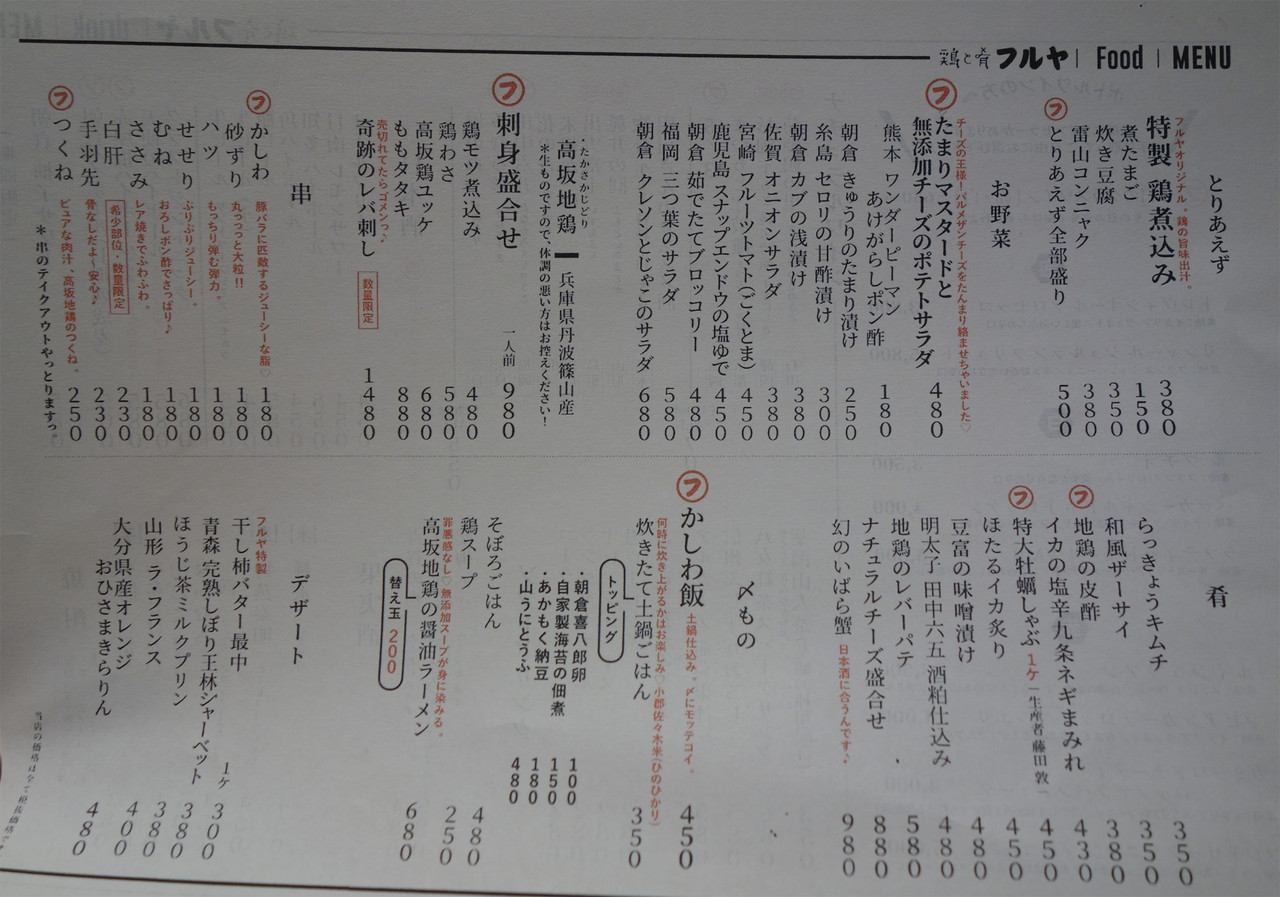 鶏と肴 フルヤ | Food | MENU
とりあえず
フルヤオリジナル。鶏の旨味出汁。
特製 鶏煮込み 380
煮たまご 150
炊き豆腐 350
雷山コンニャク 380
フ とりあえず全部盛り 500
お野菜
チーズの王様！パルメザンチーズをたんまり絡ませちゃいました♡
フ たまりマスタードと
無添加チーズのポテトサラダ 480
熊本 ワンダーピーマン
あけがらしポン酢 180
朝倉 きゅうりのたまり漬け 250
糸島 セロリの甘酢漬け 300
朝倉 カブの浅漬け 380
佐賀 オニオンサラダ 380
宮崎 フルーツトマト(ごくとま) 450
鹿児島 スナップエンドウの塩ゆで 450
朝倉 茹でたてブロッコリー 480
福岡 三つ葉のサラダ 580
朝倉 クレソンとじゃこのサラダ 680
たかさかじどり
・高坂地鶏 ー 兵庫県丹波篠山産
＊生ものですので、体調の悪い方はお控えください！
フ 刺身盛合せ 一人前 980
鶏モツ煮込み 480
鶏わさ 580
高坂鶏ユッケ 680
ももタタキ 880
売切れてたらゴメンっ♪
奇跡のレバ刺し 数量限定 1480
串
フ かしわ 豚バラに匹敵するジューシーな脂♡ 180
砂ずり 丸っっっと大粒!! 180
ハツ もっちり弾む弾力。 180
せせり ぷりぷりジューシー。 180
むね おろしポン酢でさっぱり♪ 180
ささみ レア焼きでふわふわ。 180
白肝 希少部位・数量限定 230
手羽先 骨なしだよ〜安心♪ 230
フ つくね ピュアな肉汁、高坂地鶏のつくね。 250
＊串のテイクアウトやっとりますっ。
肴
らっきょうキムチ 350
和風ザーサイ 350
フ 地鶏の皮酢 380
イカの塩辛 九条ネギまみれ 430
フ 特大牡蠣しゃぶ 1ケ ー生産者 藤田 敦ー 450
ほたるイカ炙り 450
豆富の味噌漬け 480
明太子 田中六五 酒粕仕込み 480
地鶏のレバーパテ 580
ナチュラルチーズ盛合せ 880
幻のいばら蟹 日本酒に合うんです♪ 980
〆もの
フ かしわ飯 土鍋仕込み。〆にモッテコイ。 450
何時に炊き上がるかはお楽しみ♡小郡佐々木米(ひのひかり)
炊きたて土鍋ごはん 350
トッピング
・朝倉喜八郎卵 100
・自家製海苔の佃煮 150
・あかもく納豆 180
・山うにとうふ 480
そぼろごはん 480
鶏スープ 250
罪悪感なし♡無添加スープが身に染みる。
高坂地鶏の醤油ラーメン 680
替え玉 200
デザート
フルヤ特製
干し柿バター最中 1ケ 300
青森 完熟しぼり王林シャーベット 380
ほうじ茶ミルクプリン 380
山形 ラ・フランス 400
大分県産オレンジ
おひさまきらりん 480
当店の価格は全て税抜価格です